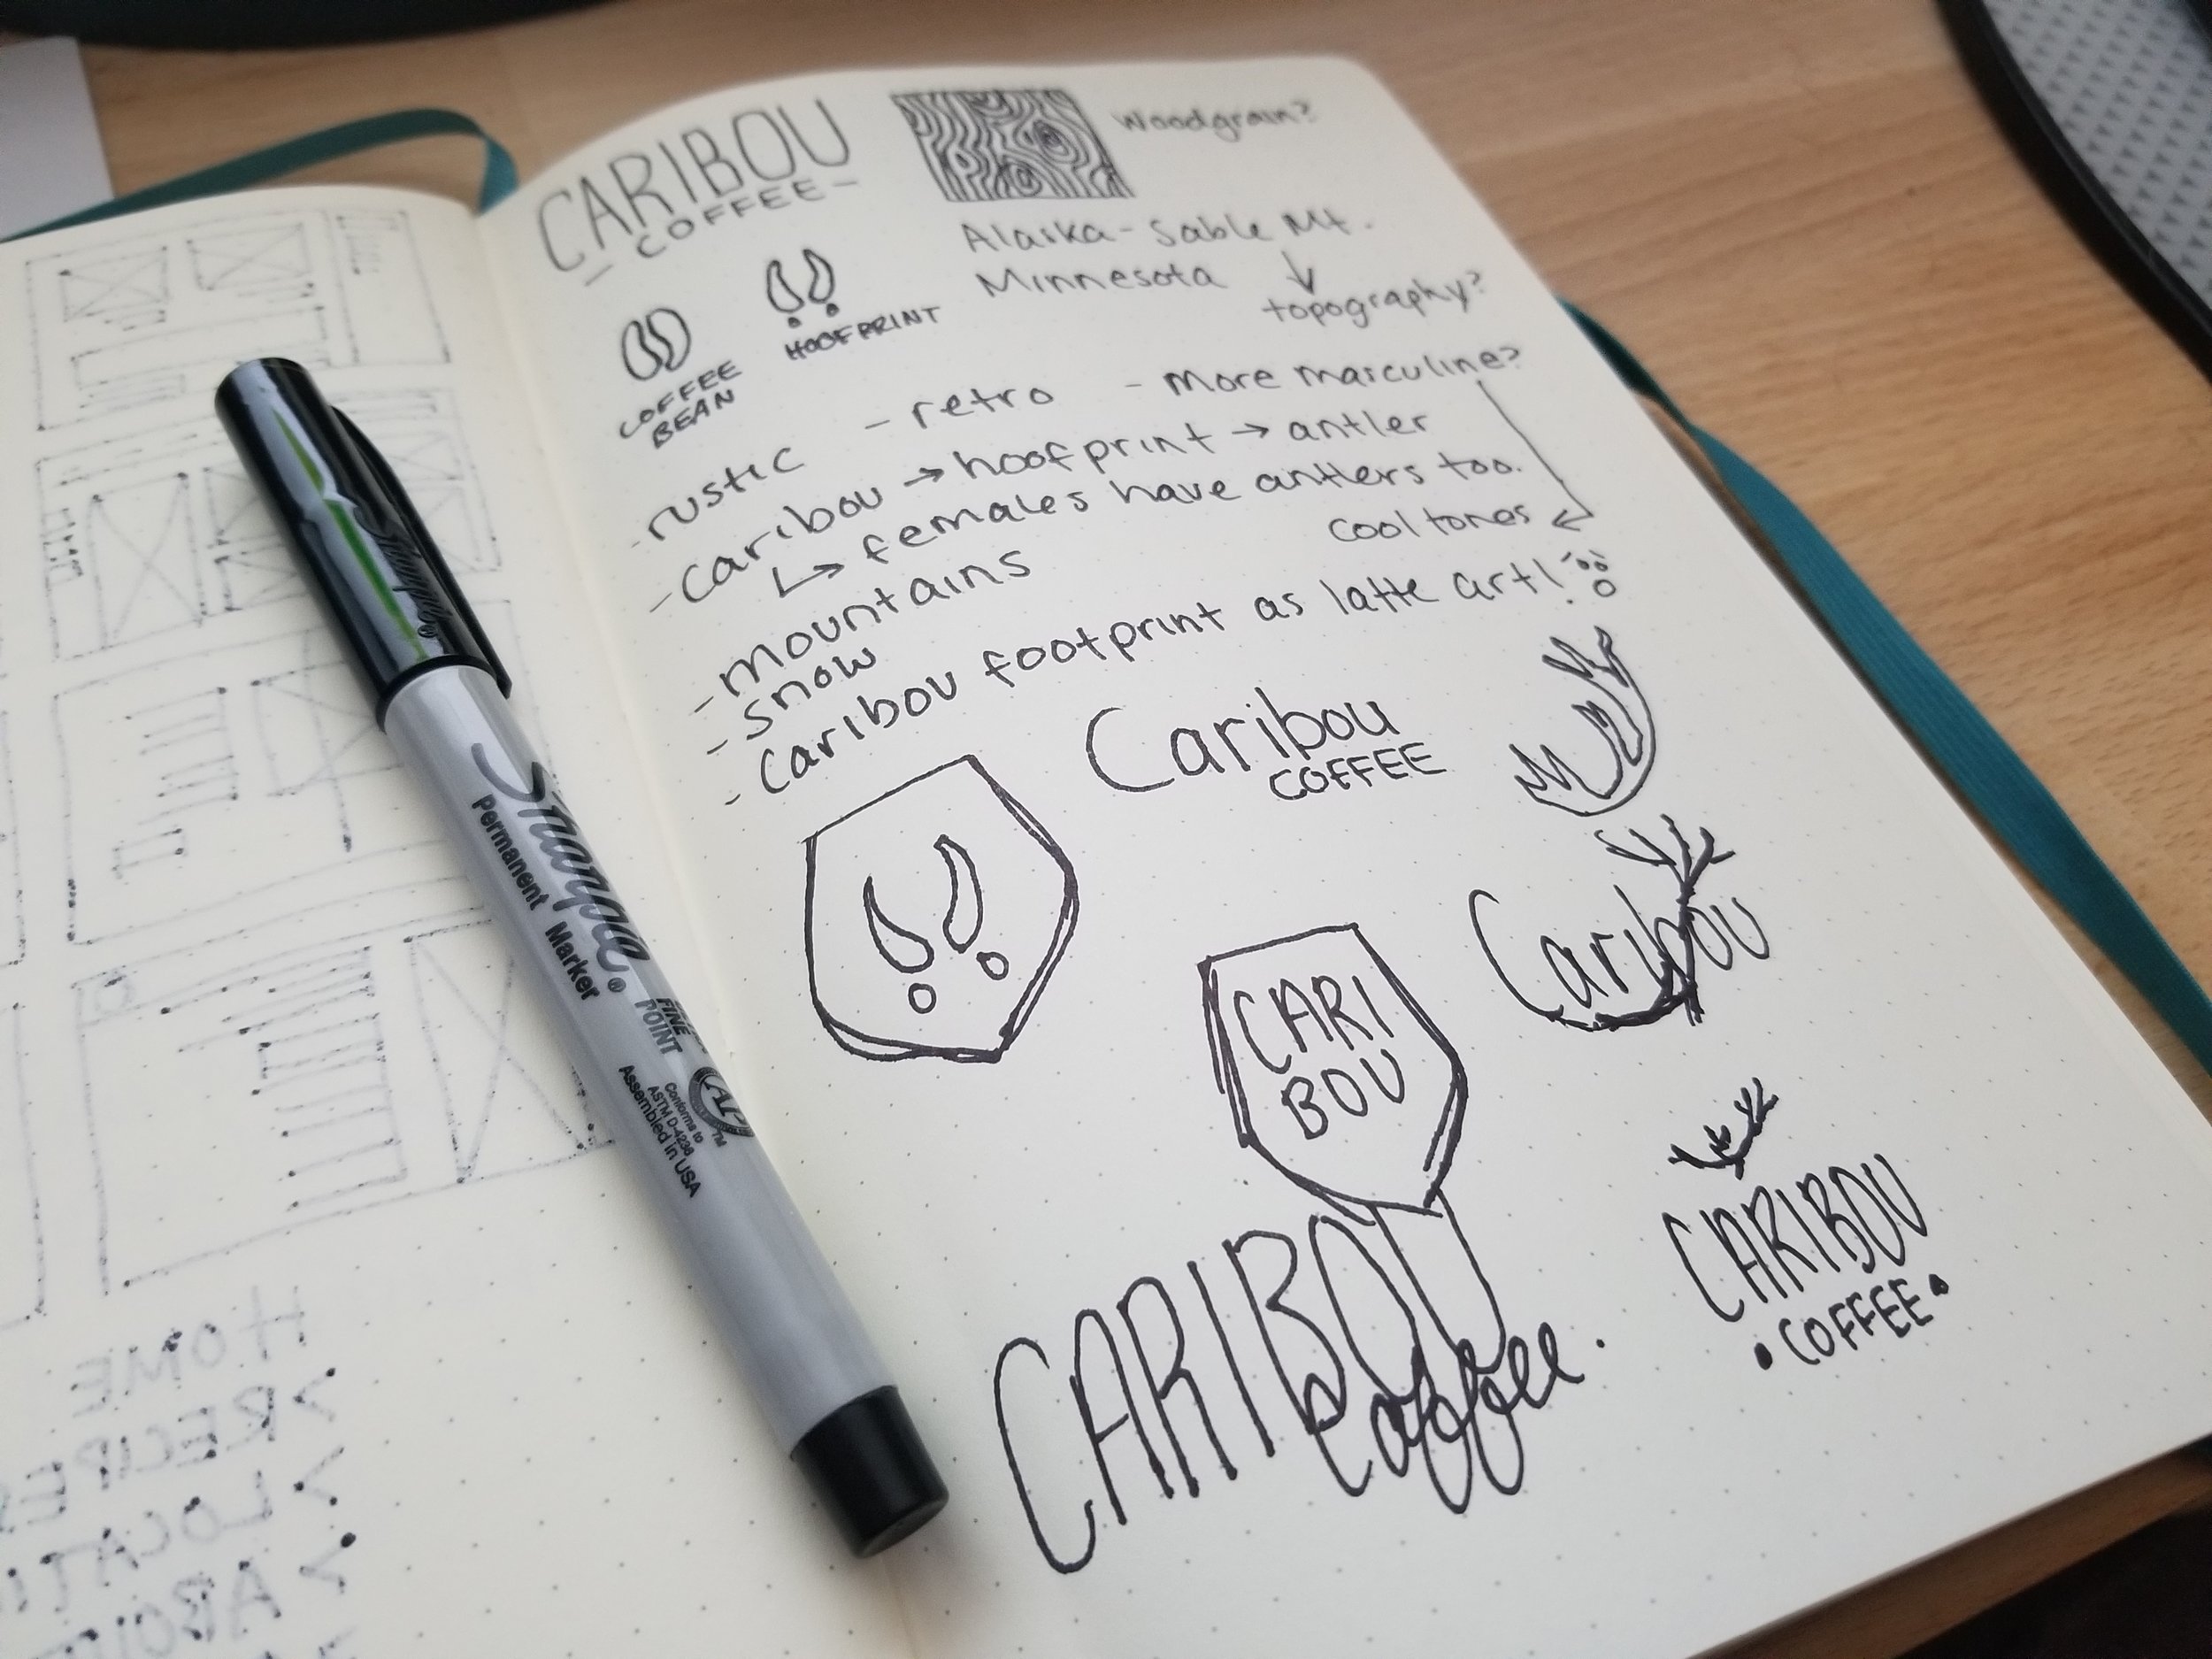 CARIBOU
- COFFEE -
Woodgrain?
Alaska - Sable Mt.
Minnesota
topography?
COFFEE
BEAN
HOOFPRINT
- rustic
- retro
- More masculine?
- caribou → hoofprint → antler
↳ females have antlers too.
cool tones
- mountains
- snow
- Caribou footprint as latte art!
Caribou
COFFEE
Caribou
CARI
BOU
CARIBOU
• COFFEE •
CARIBOU
coffee.
Sharpie
Sharpie®
Permanent Marker
FINE
POINT
AP
TM
Conforms to
ASTM D-4236
Assembled in USA
HOME
>RECIPES
>LOCATI
>ABOU